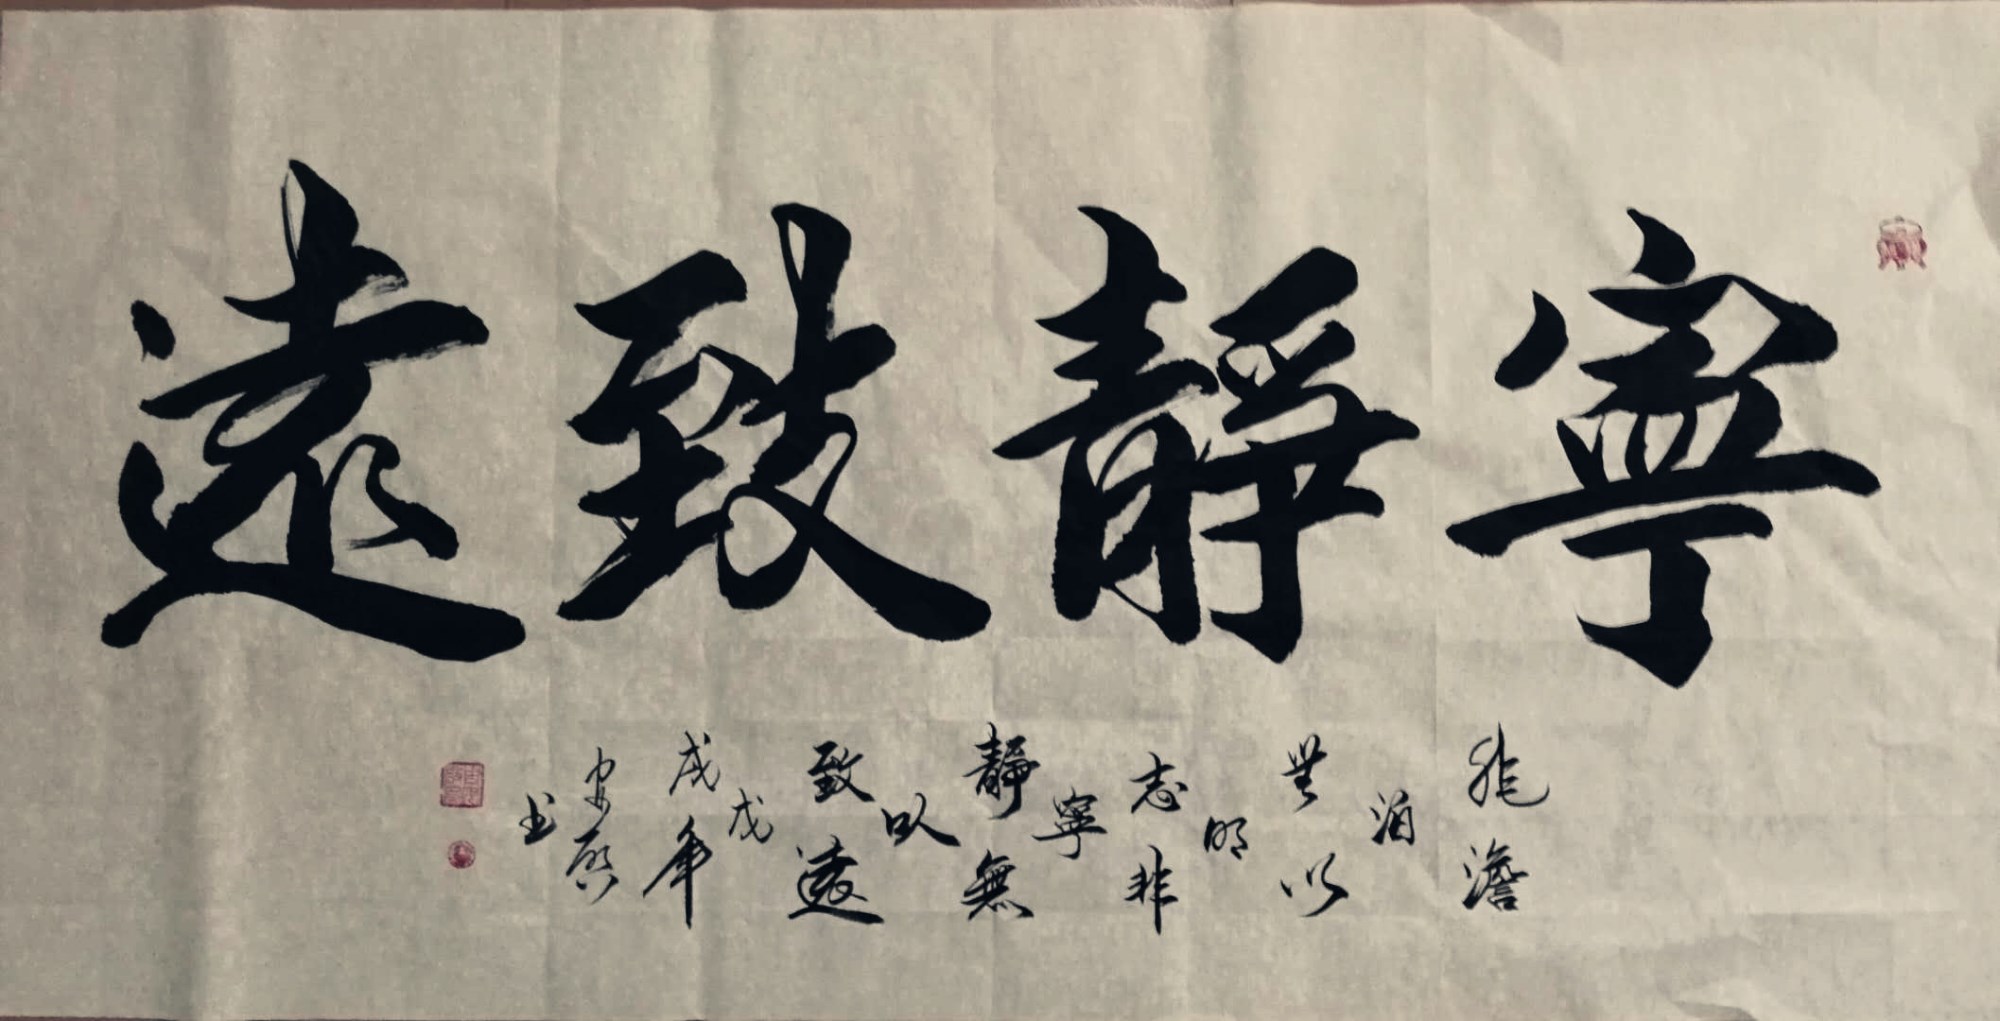 寧靜致遠
非澹泊無以明志非寧靜無以致遠戊戌年书